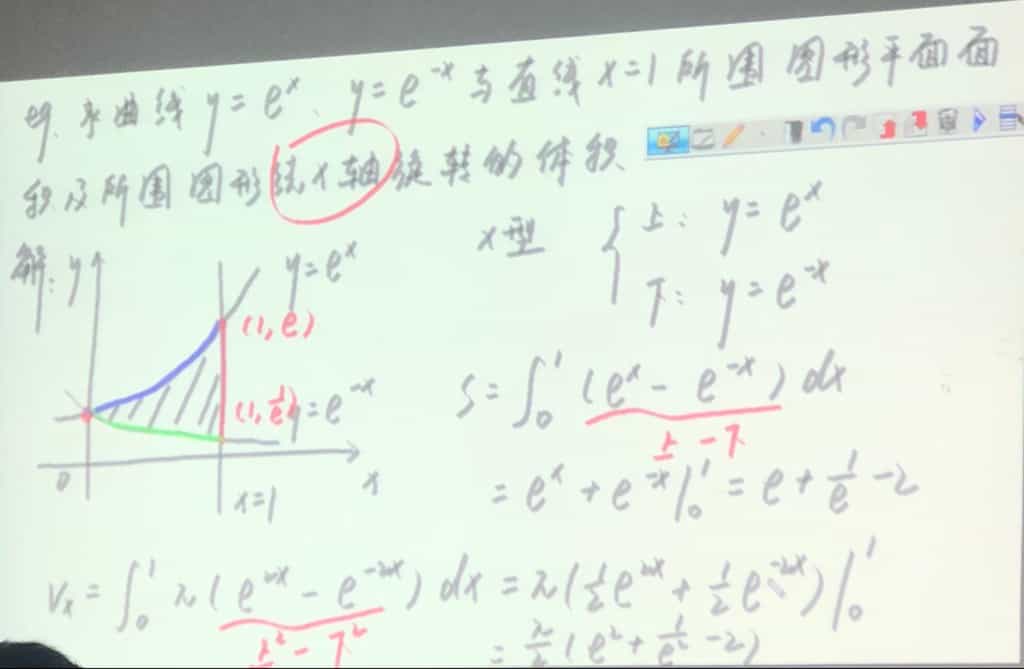 例. 求曲线 y=eˣ、y=e⁻ˣ 与直线 x=1 所围图形平面面
积及所围图形绕x轴旋转的体积
解:
y
y=eˣ
(1, e)
(1, 1/e)
y=e⁻ˣ
0
x=1
x
x型 { 上: y=eˣ
下: y=e⁻ˣ
S=∫₀¹ (eˣ - e⁻ˣ) dx
上-下
= eˣ + e⁻ˣ |₀¹ = e + 1/e - 2
Vₓ = ∫₀¹ π(e²ˣ - e⁻²ˣ) dx = π(1/2 e²ˣ + 1/2 e⁻²ˣ) |₀¹
上² - 下²
= π/2 (e² + 1/e² - 2)